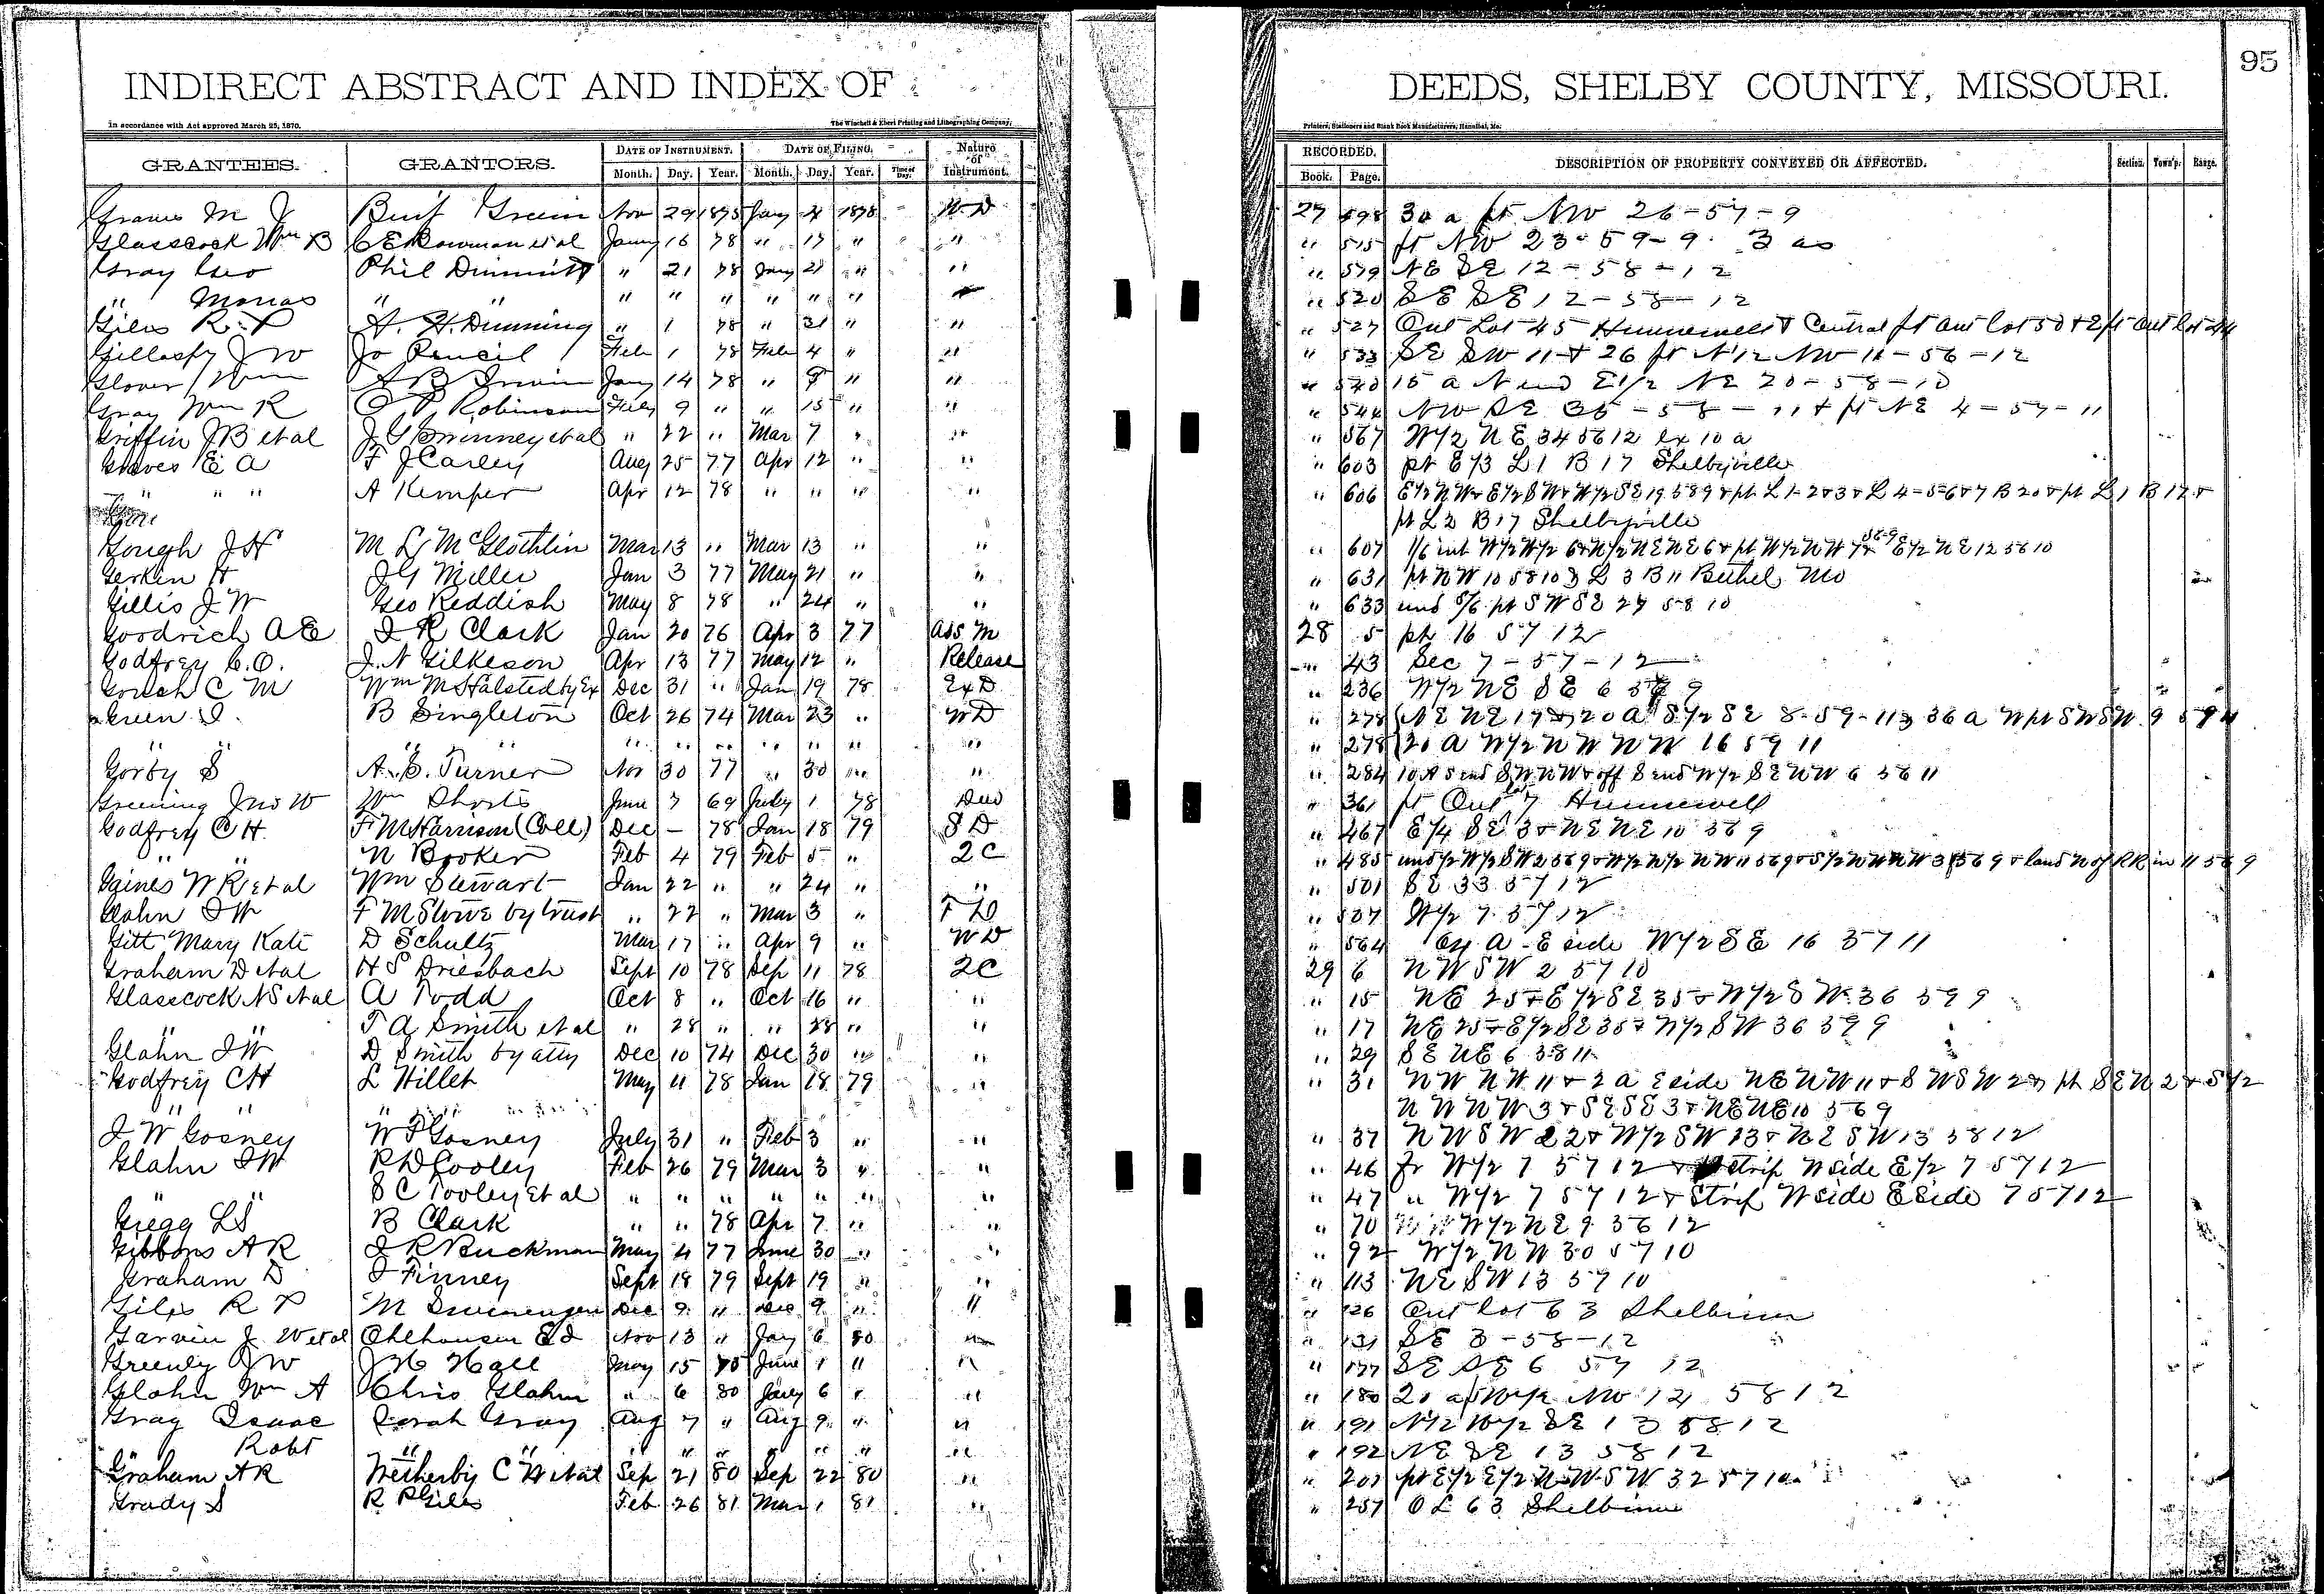 95
INDIRECT ABSTRACT AND INDEX OF DEEDS, SHELBY COUNTY, MISSOURI.
In accordance with Act approved March 25, 1870. The Winchell & Ebert Printing and Lithographing Company, Printers, Stationers and Blank Book Manufacturers, Hannibal, Mo.
GRANTEES. GRANTORS. DATE OF INSTRUMENT. DATE OF FILING. Nature of Instrument. RECORDED. DESCRIPTION OF PROPERTY CONVEYED OR AFFECTED. Section. Town'p. Range.
Month. Day. Year. Month. Day. Year. Time of Day. Book. Page.
Graves M J Benj Green Nov 29 1875 Jany 4 1878 W D 27 498 30 a pt NW 26-57-9
Glasscock Wm B C E Bowman et al Jany 16 78 " 17 " " " 515 pt NW 23-59-9 3 as
Gray Geo Phil Dimmitt " 21 78 Jany 21 " " " 519 NE SE 12-58-12
" " " " " " " " " " " 520 SE SE 12-58-12
Giles R P A. H. Dunning " 1 78 " 31 " " " 527 Out Lot 45 Hunnewell & Central pt out lot 50 & E pt out lot 44
Gillaspy J W Jo Pencil Feb 1 78 Feb 4 " " " 533 SE SW 11 & 26 pt N 1/2 NW 11-56-12
Glover Wm A B Irwin Jany 14 78 " 9 " " " 540 15 a N end E 1/2 NE 20-58-10
Gray Wm R C P Robinson Feby 9 " " 15 " " " 544 NW SE 35-58-11 & pt NE 4-57-11
Griffin J B et al J G Swinney et al " 22 " Mar 7 " " " 567 W 1/2 NE 34 56 12 ex 10 a
Graves E A F J Carley Aug 25 77 Apr 12 " " " 603 pt E 1/3 L 1 B 17 Shelbyville
" " " A Kemper Apr 12 78 " " " " " 606 E 1/2 NW & E 1/2 SW & W 1/2 SE 19 58 9 & pt L 1-2 & 3 & L 4-5-6 & 7 B 20 & pt L 1 B 17 &
pt L 2 B 17 Shelbyville
Gough J H M L McGlothlin Mar 13 " Mar 13 " " " 607 1/6 int W 1/2 W 1/2 6 & N 1/2 NE NE 6 & pt W 1/2 NW 7 58-9 & E 1/2 NE 12 58 10
Gerken H J G Miller Jan 3 77 May 21 " " " 631 pt NW 10 58 10 & L 3 B 11 Bethel Mo
Gillis J W Geo Reddish May 8 78 " 24 " " " 633 und 5/6 pt SW SE 27 58 10
Goodrich A E I R Clark Jan 20 76 Apr 3 77 Ass M 28 5 pt 16 57 12
Godfrey C. O. J. N Gilkeson Apr 13 77 May 12 " Release " 43 Sec 7-57-12
Gouch C M Wm M Halsted by Ex Dec 31 " Jan 19 78 Ex D " 236 W 1/2 NE SE 6 9
Green I. B Singleton Oct 26 74 Mar 23 " W D " 278 NE NE 17 & 20 A S 1/2 SE 8-59-11 & 36 a W pt SW SW 9 59 11
" " " " " " " " " " " " 278 20 A W 1/2 NW NW 16 59 11
Gorby S A. S. Turner Nov 30 77 " 30 " " " 284 10 A S end SW NW & off S end W 1/2 SE NW 6 58 11
Greening Jno W Wm Shorts June 7 69 July 1 78 Deed " 361 pt Out lot 7 Hunnewell
Godfrey C H. F M Harrison (Coll) Dec - 78 Jan 18 79 S D " 467 E 1/4 SE 3 & NE NE 10 56 9
" " N Booker Feb 4 79 Feb 5 " 2 C " 485 und 1/2 W 1/2 SW 2 56 9 & W 1/2 W 1/2 NW 11 56 9 & S 1/2 NW NW 3 56 9 & land N of RR in 11 56 9
Gaines W R et al Wm Stewart Jan 22 " " 24 " " " 501 SE 33 57 12
Glahn I W F M Stove by trust " 22 " Mar 3 " T D " 507 W 1/2 7 57 12
Gitt Mary Kate D Schultz Mar 17 " Apr 9 " W D " 564 a E side W 1/2 SE 16 57 11
Graham D et al H S Driesbach Sept 10 78 Sep 11 78 2C 29 6 NW SW 2 57 10
Glasscock N S et al A Todd Oct 8 " Oct 16 " " " 15 NE 25 & E 1/2 SE 35 & W 1/2 SW 36 59 9
" " T A Smith et al " 28 " " 28 " " " 17 NE 25 & E 1/2 SE 35 & W 1/2 SW 36 59 9
Glahn I W D Smith by atty Dec 10 74 Dec 30 " " " 29 SE NE 6 58 11
Godfrey C H L Hillet May 11 78 Jan 18 79 " " 31 NW NW 11 & 2 a E side NE NW 11 & SW SW 2 & pt SE 2 & S 1/2
" " " " NW NW 3 & SE SE 3 & NE NE 10 56 9
I W Gosney W F Gosney July 31 " Feb 3 " " " 37 NW SW 22 & W 1/2 SW 13 & NE SW 13 58 12
Glahn I W R D Cooley Feb 26 79 Mar 3 " " " 46 fr W 1/2 7 57 12 & strip W side E 1/2 7 57 12
" " S C Tooley et al " " " " " " " " 47 " W 1/2 7 57 12 & Strip W side E side 7 57 12
Gregg L S B Clark " " 78 Apr 7 " " " 70 W 1/2 NE 9 56 12
Gibbons A R I R Buckman May 4 77 June 30 " " " 92 W 1/2 NW 30 57 10
Graham D I Finney Sept 18 79 Sept 19 " " " 113 NE SW 13 57 10
Giles R P M Swearengen Dec 9 " Dec 9 " " " 126 Out lot 63 Shelbina
Garvin J W et al Ohlhausen E I Nov 13 " Jany 6 80 " " 131 SE 3-58-12
Greenly J W J H Hall May 15 75 June 1 " " " 177 SE SE 6 57 12
Glahn Wm A Chris Glahn " 6 80 July 6 " " " 180 20 a NW 12 58 12
Gray Isaac Sarah Gray Aug 7 " Aug 9 " " " 191 N 1/2 W 1/2 SE 13 58 12
" Robt " " " " " " " " " " 192 NE SE 13 58 12
Graham A R Wetherby C W et al Sep 21 80 Sep 22 80 " " 201 pt E 1/2 E 1/2 NW SW 32 57 10
Grady S R P Giles Feb 26 81 Mar 1 81 " " 257 O L 63 Shelbina